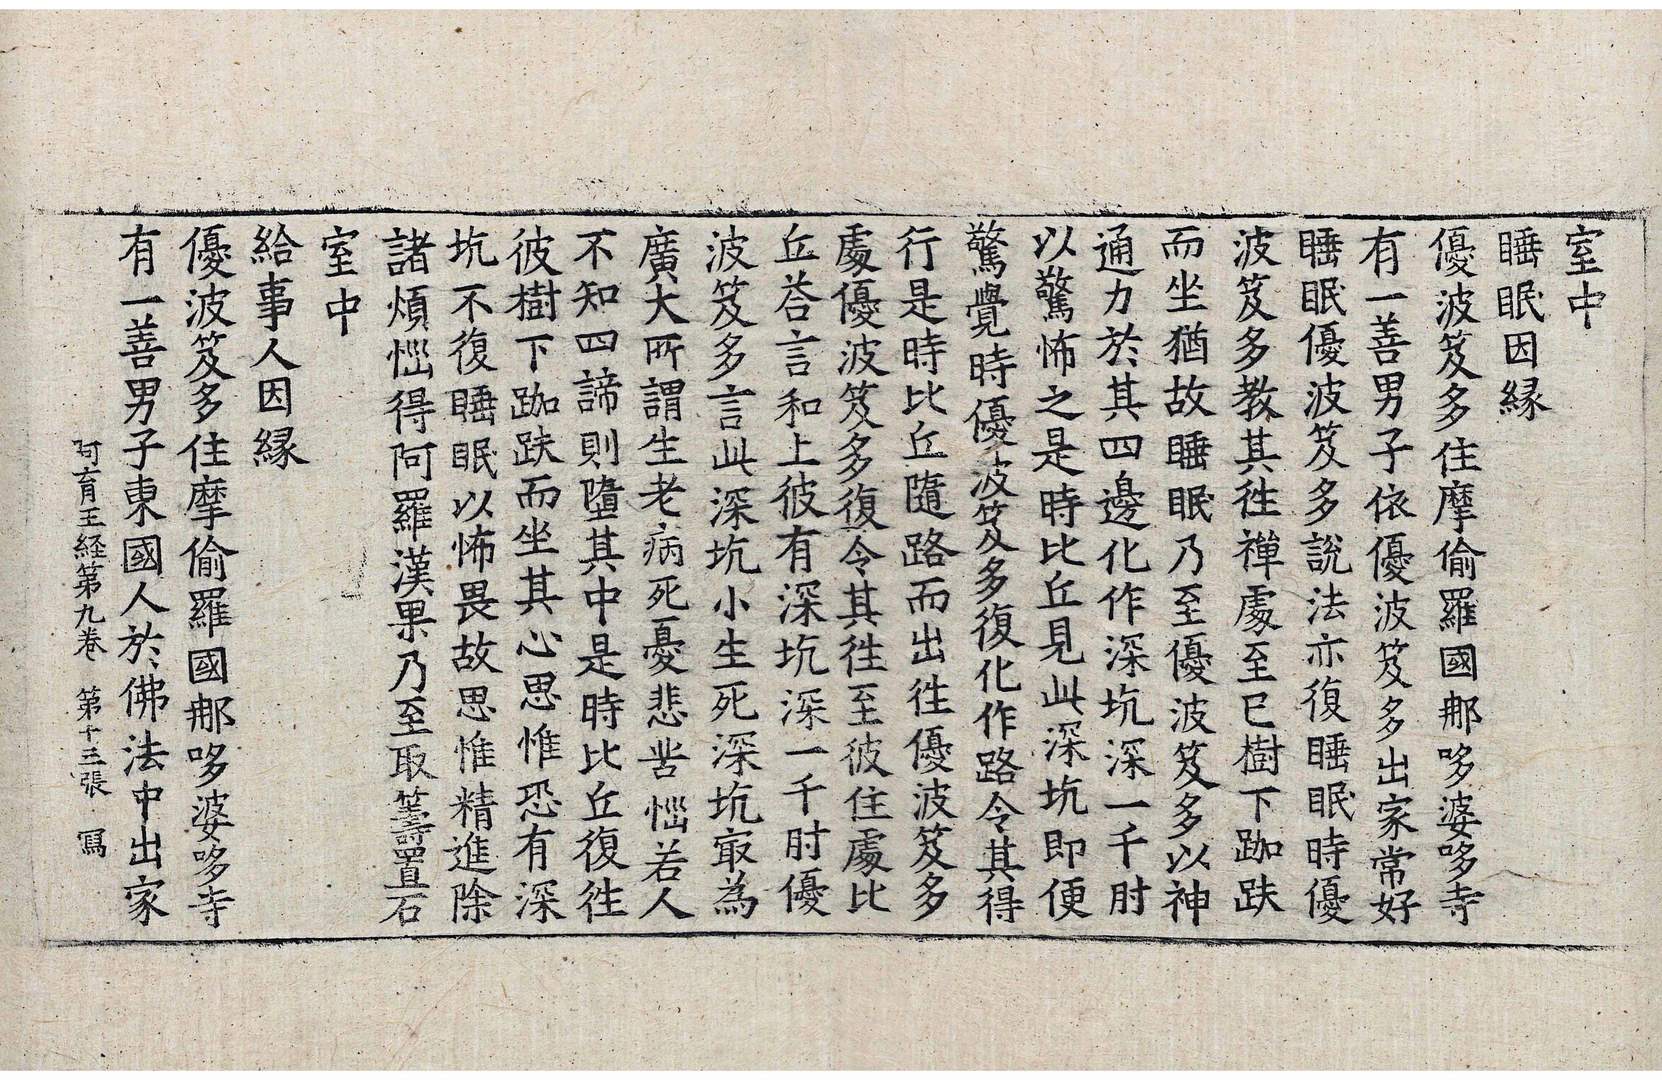 室中
睡眠因縁
優波笈多住摩偷羅國那哆婆哆寺
有一善男子依優波笈多出家常好
睡眠優波笈多說法亦復睡眠時優
波笈多教其徃禪處至巳樹下跏趺
而坐猶故睡眠乃至優波笈多以神
通力於其四邊化作深坑深一千肘
以驚怖之是時比丘見此深坑即便
驚覺時優波笈多復化作路令其得
行是時比丘隨路而出徃優波笈多
處優波笈多復令其徃至彼住處比
丘荅言和上彼有深坑深一千肘優
波笈多言此深坑小生死深坑㝡為
廣大所謂生老病死憂悲苦惱若人
不知四諦則墮其中是時比丘復徃
彼樹下跏趺而坐其心思惟恐有深
坑不復睡眠以怖畏故思惟精進除
諸煩惱得阿羅漢果乃至取籌置石
室中
給事人因縁
優波笈多住摩偷羅國那哆婆哆寺
有一善男子東國人於佛法中出家
阿育王経第九巻 第十三張 寫